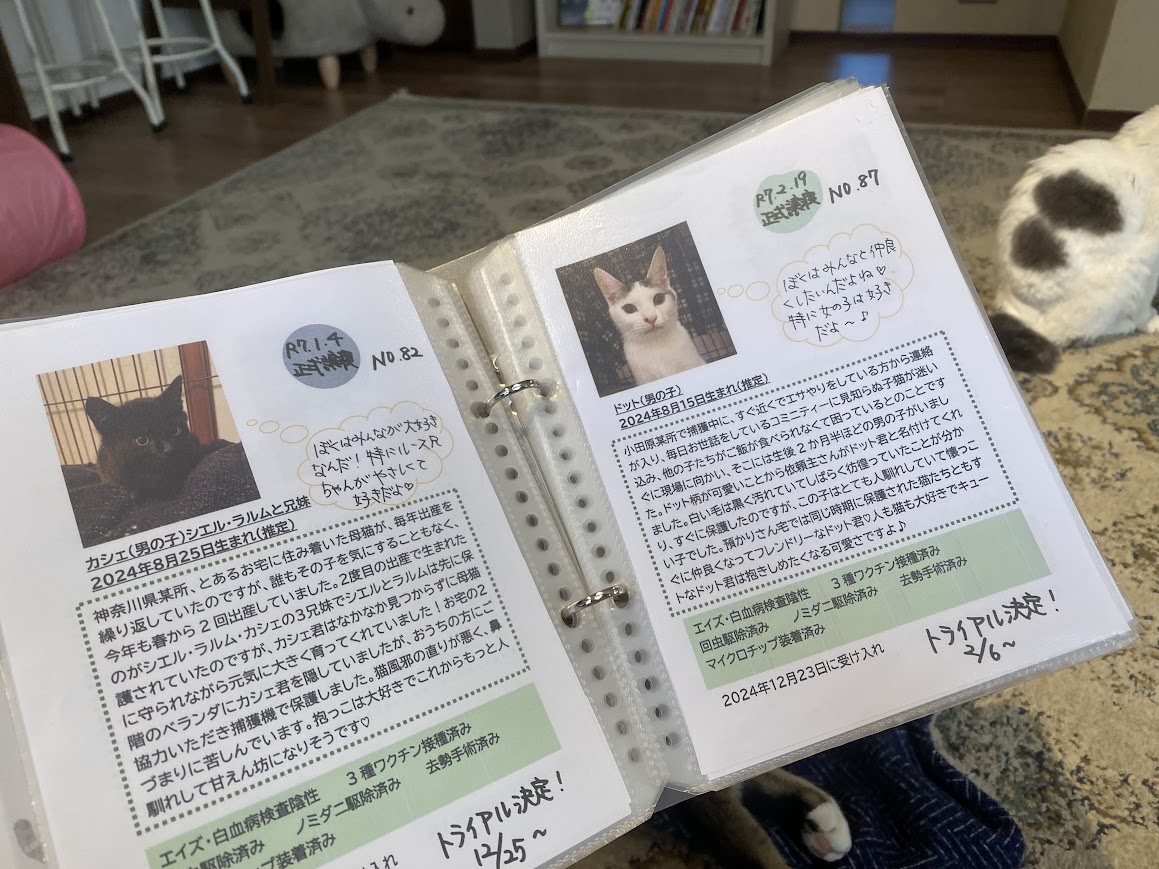 R7.1.4
正式譲渡
NO.82
ぼくはみんなが大好き
なんだ！特にルース兄
ちゃんがやさしくて
好きだよ♡
カシェ(男の子)シエル・ラルムと兄妹
2024年8月25日生まれ(推定)
神奈川県某所、とあるお宅に住み着いた母猫が、毎年出産を
繰り返していたのですが、誰もその子を気にすることもなく、
今年も春から2回出産していました。2度目の出産で生まれた
のがシエル・ラルム・カシェの3兄妹でシエルとラルムは先に保
護されていたのですが、カシェ君はなかなか見つからずに母猫
に守られながら元気に大きく育ってくれていました！お宅の2
階のベランダにカシェ君を隠していましたが、おうちの方にご
協力いただき捕獲機で保護しました。猫風邪の直りが悪く、鼻
づまりに苦しんでいます。抱っこは大好きでこれからもっと人
馴れして甘えん坊になりそうです♡
エイズ・白血病検査陰性
3種ワクチン接種済み
虫駆除済み
ノミダニ駆除済み
去勢手術済み
プ装着済み
け入れ
トライアル決定！
12/25～
R7.2.19
正式譲渡
NO.87
ぼくはみんなと仲良
くしたいんだよね♡
特に女の子は好き
だよ～♪
ドット(男の子)
2024年8月15日生まれ(推定)
小田原某所で捕獲中に、すぐ近くでエサやりをしている方から連絡
が入り、毎日お世話をしているコミニティーに見知らぬ子猫が迷い
込み、他の子たちがご飯が食べられなくて困っているとのことです
ぐに現場に向かい、そこには生後2か月半ほどの男の子がいまし
た。ドット柄が可愛いことから依頼主さんがドット君と名付けてくれ
ました。白い毛は黒く汚れていてしばらく彷徨っていたことが分か
り、すぐに保護したのですが、この子はとても人馴れしていて懐っこ
い子でした。預かりさん宅では同じ時期に保護された猫たちともす
ぐに仲良くなってフレンドリーなドット君♡人も猫も大好きでキュー
トなドット君は抱きしめたくなる可愛さですよ♪
エイズ・白血病検査陰性
3種ワクチン接種済み
回虫駆除済み
ノミダニ駆除済み
去勢手術済み
マイクロチップ装着済み
2024年12月23日に受け入れ
トライアル決定！
2/6～